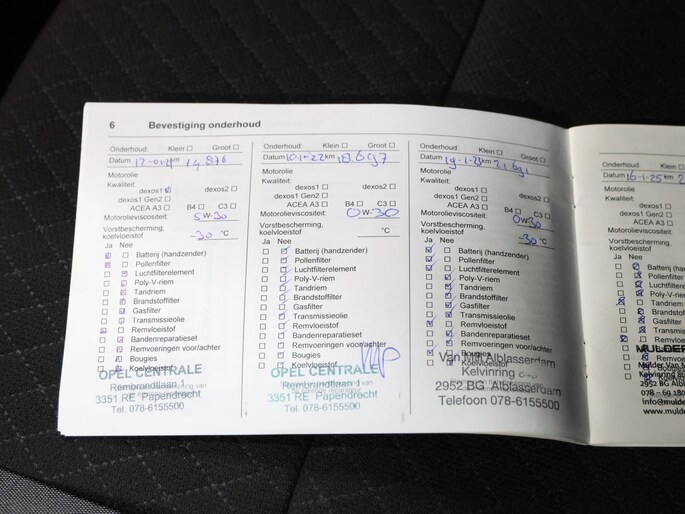 6 Bevestiging onderhoud
Onderhoud: Klein ☐ Groot ☐
Datum 12-01-21 km 14 876
Motorolie
Kwaliteit:
dexos1 ☑ dexos2 ☐
dexos1 Gen2 ☐
ACEA A3 ☐ B4 ☐ C3 ☐
Motorolieviscositeit: 5 W-30
Vorstbescherming,
koelvloeistof -30 °C
Ja Nee
Batterij (handzender)
Pollenfilter
Luchtfilterelement
Poly-V-riem
Tandriem
Brandstoffilter
Gasfilter
Transmissieolie
Remvloeistof
Bandenreparatieset
Remvoeringen voor/achter
Bougies
Koelvloeistof
OPEL CENTRALE
Rembrandtlaan 1
3351 RE Papendrecht
Tel. 078-6155500
Onderhoud: Klein ☐ Groot ☐
Datum 10-1-22 km 18.697
Motorolie
Kwaliteit:
dexos1 ☐ dexos2 ☐
dexos1 Gen2 ☐
ACEA A3 ☐ B4 ☐ C3 ☐
Motorolieviscositeit: 0 W-30
Vorstbescherming,
koelvloeistof °C
Ja Nee
Batterij (handzender)
Pollenfilter
Luchtfilterelement
Poly-V-riem
Tandriem
Brandstoffilter
Gasfilter
Transmissieolie
Remvloeistof
Bandenreparatieset
Remvoeringen voor/achter
Bougies
Koelvloeistof
OPEL CENTRALE
Rembrandtlaan 1
3351 RE Papendrecht
Tel. 078-6155500
Onderhoud: Klein ☐ Groot ☐
Datum 19-1-23 km 21 691
Motorolie
Kwaliteit:
dexos1 ☐ dexos2 ☐
dexos1 Gen2 ☐
ACEA A3 ☐ B4 ☐ C3 ☐
Motorolieviscositeit: 0W-30
Vorstbescherming,
koelvloeistof -30 °C
Ja Nee
Batterij (handzender)
Pollenfilter
Luchtfilterelement
Poly-V-riem
Tandriem
Brandstoffilter
Gasfilter
Transmissieolie
Remvloeistof
Bandenreparatieset
Remvoeringen voor/achter
Bougies
Alblasserdam
Kelvinring
2952 BG Alblasserdam
Telefoon 0757-6155500
Onderhoud: Klein ☐
Datum 16-1-25 km
Motorolie
Kwaliteit:
dexos1 ☐
dexos1 Gen2 ☐
ACEA A3 ☐
Motorolieviscositeit:
Vorstbescherming,
koelvloeistof
Ja Nee
Batterij (hand
Pollenfilter
Luchtfilterele
Poly-V-riem
Tandriem
Brandstoffilte
Gasfilter
Transmissie
Remvloeisto
Bandenrepa
MULDER
Mulder Van
Kelvinring
2952 BG Albla
078 - 69 180
info@mulde
www.mulde